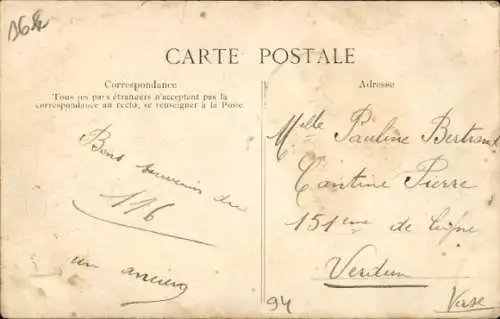 CARTE POSTALE
Correspondance
Tous les pays étrangers n'acceptent pas la
correspondance au recto, se renseigner à la Poste.
Bons souvenirs du
116
un ancien
Adresse
Mlle Pauline Bertrand
Cantine Pierre
151eme de ligne
Verdun
94